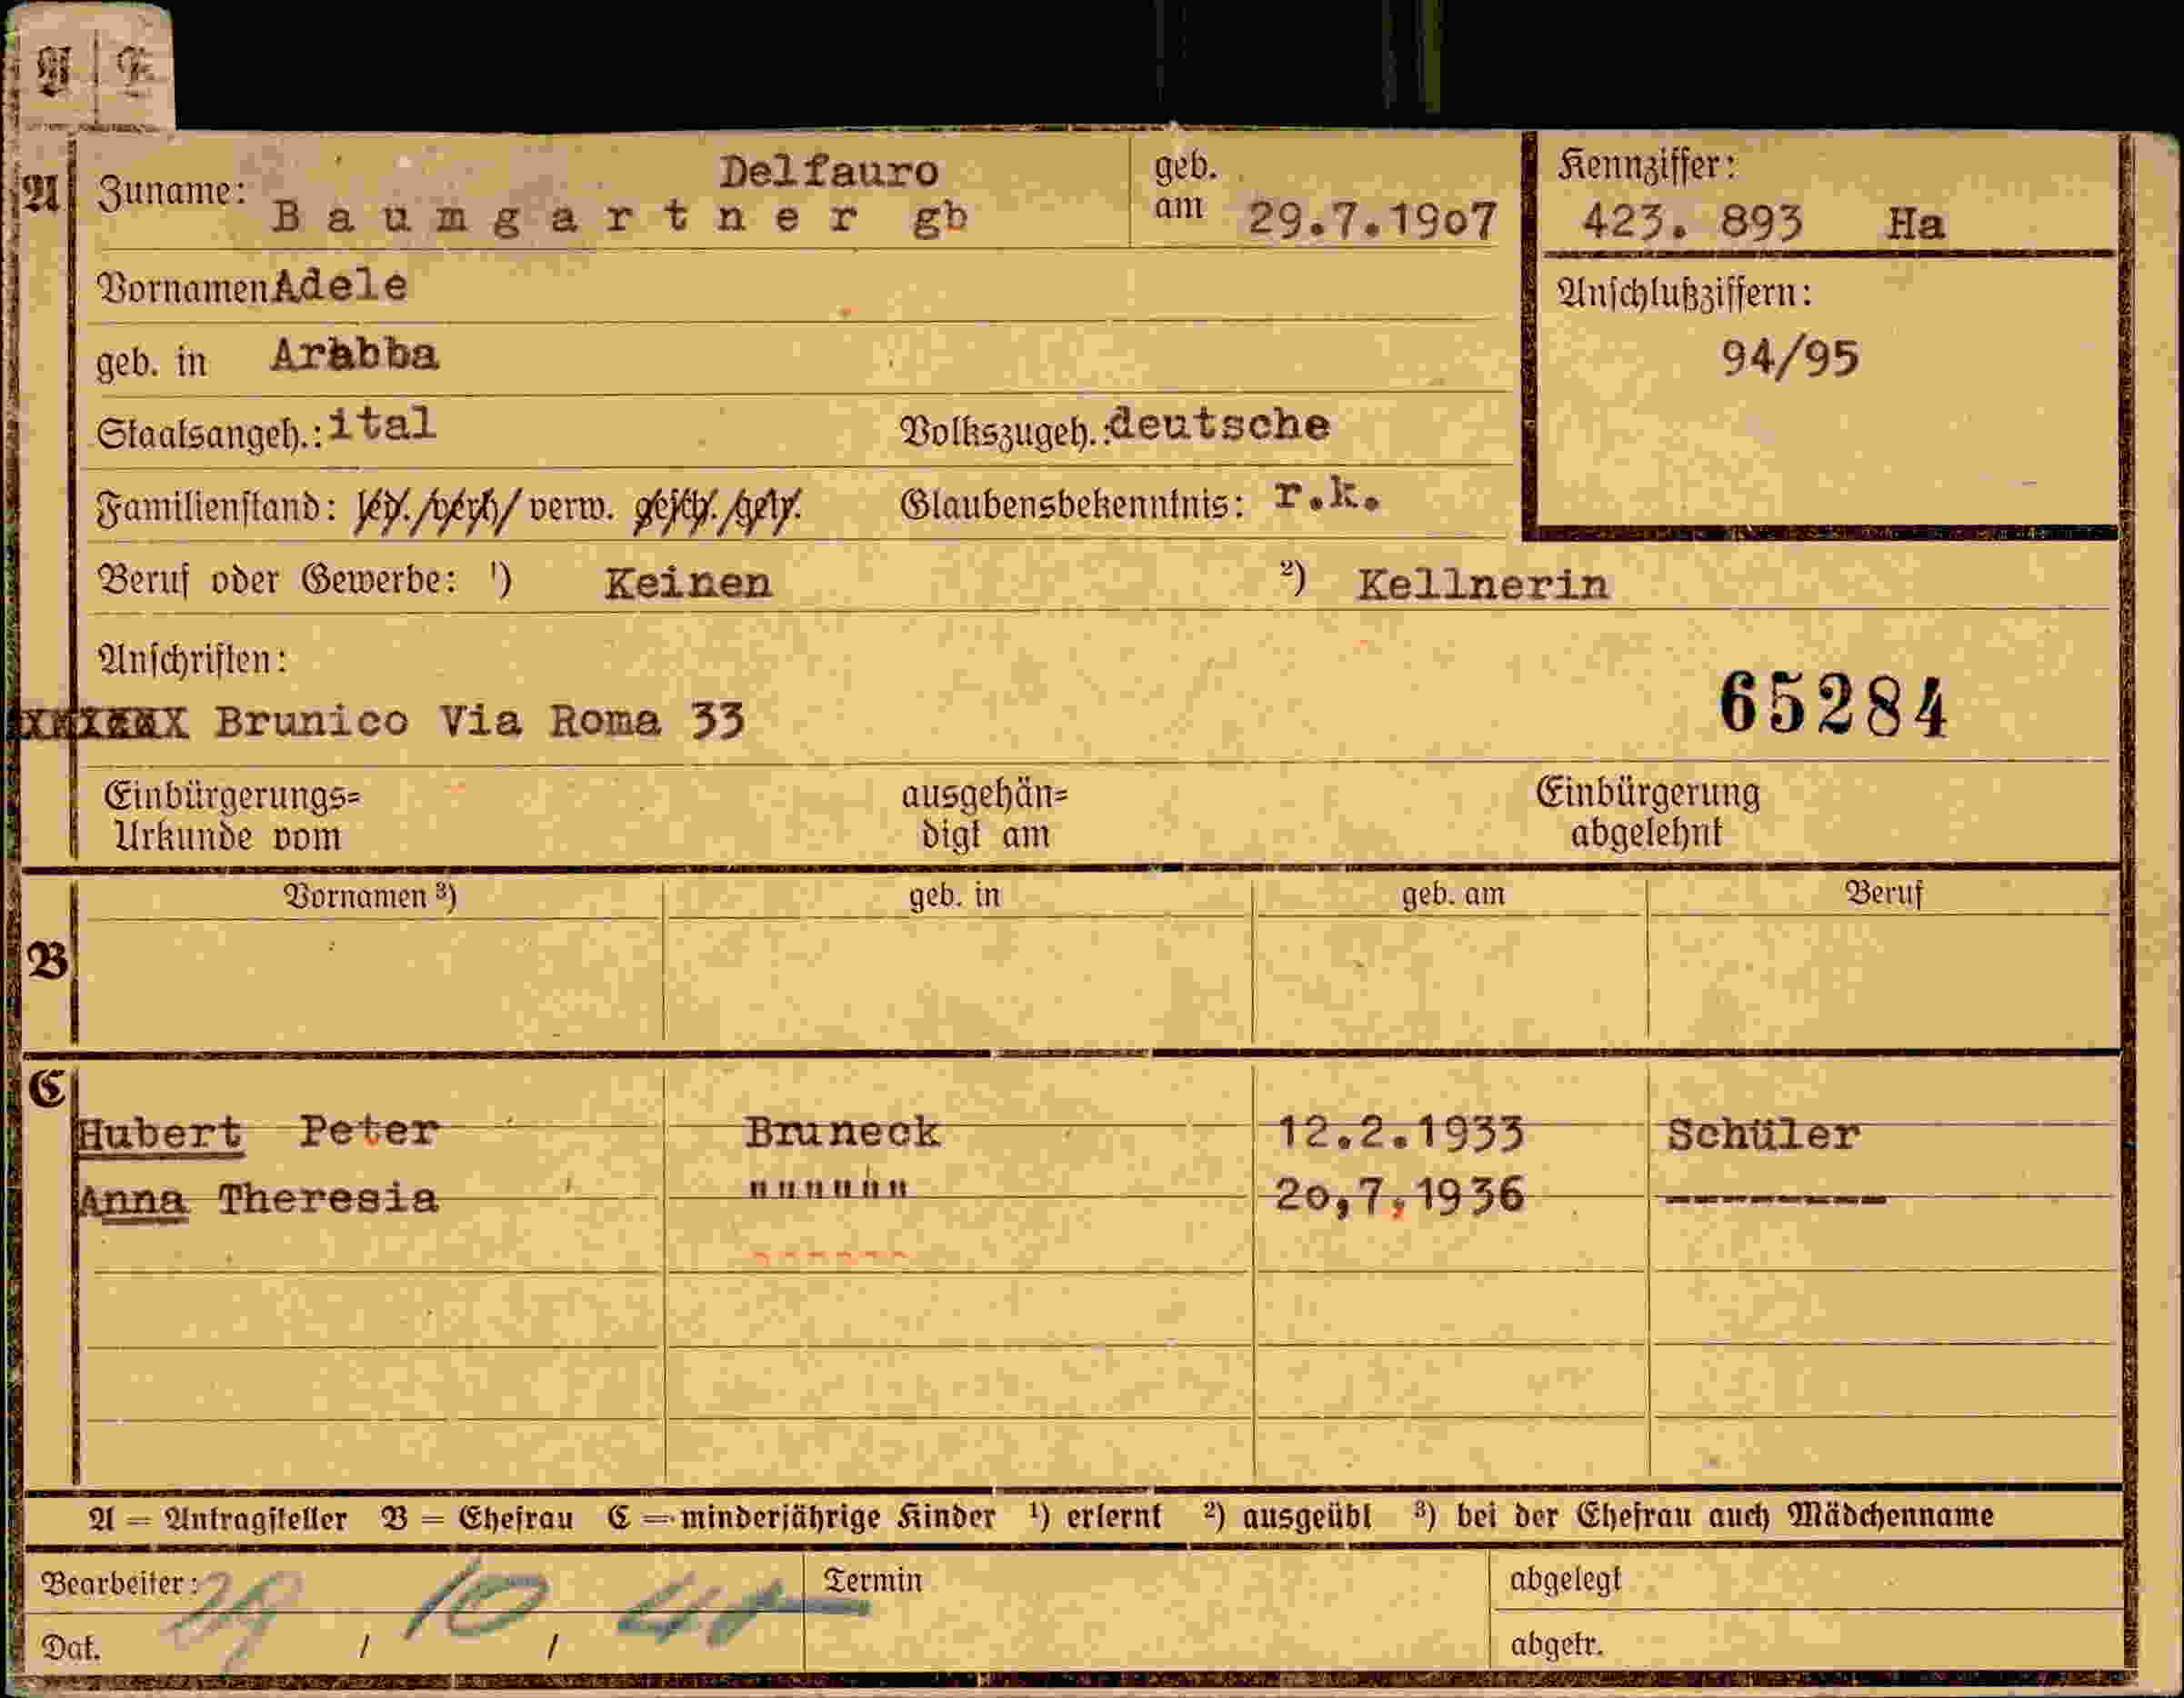 A E
A Zuname: Baumgartner gb Delfauro
geb. am 29.7.1907
Kennziffer:
423. 893 Ha
Vornamen Adele
Anschlußziffern:
94/95
geb. in Arabba
Staatsangeh.: ital Volkszugeh.: deutsche
Familienstand: led. / verh / verw. gesch. / getr. Glaubensbekenntnis: r.k.
Beruf oder Gewerbe: ¹) Keinen ²) Kellnerin
Anschriften:
65284
Brunico Via Roma 33
Einbürgerungs= ausgehän= Einbürgerung
Urkunde vom digt am abgelehnt
Vornamen ³) geb. in geb. am Beruf
B
C
Hubert Peter Bruneck 12.2.1933 Schüler
Anna Theresia """""" 20,7,1936 --------
A = Antragsteller B = Ehefrau C = minderjährige Kinder ¹) erlernt ²) ausgeübt ³) bei der Ehefrau auch Mädchenname
Bearbeiter: Termin abgelegt
Dat. 29 / 10 / 40 abgetr.